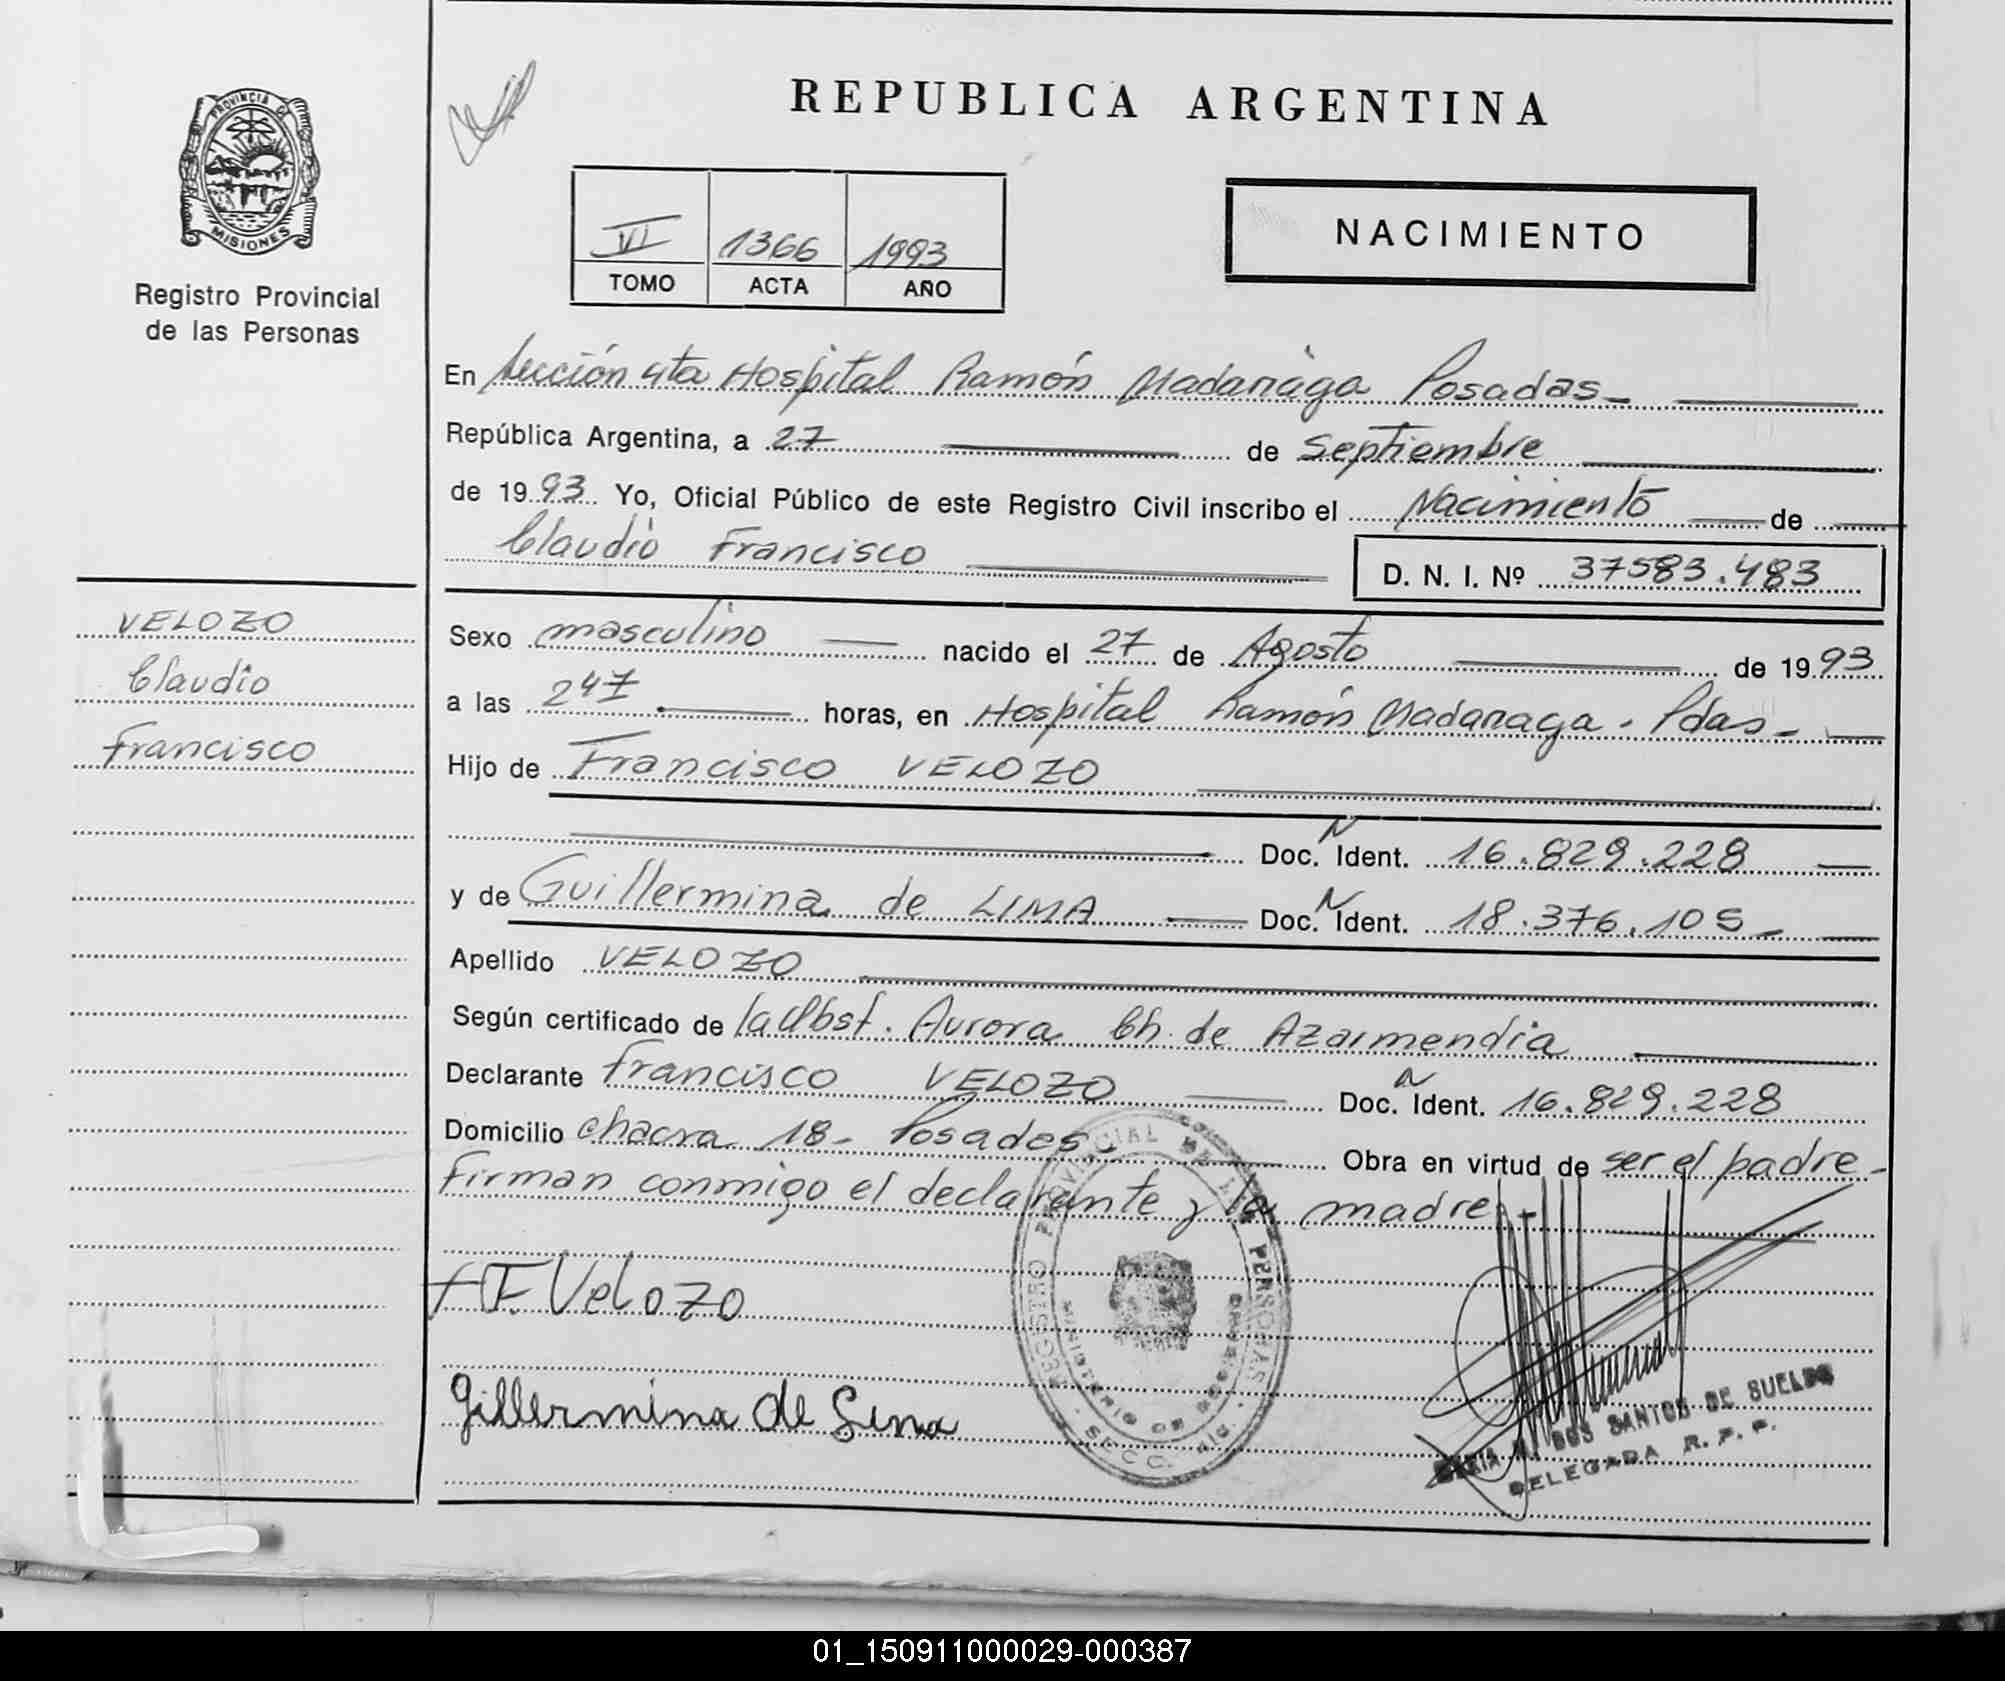 PROVINCIA DE
MISIONES
Registro Provincial
de las Personas
REPUBLICA ARGENTINA
VI 1366 1993
TOMO ACTA AÑO
NACIMIENTO
En Sección 4ta Hospital Ramón Madariaga Posadas
República Argentina, a 27 de Septiembre
de 1993 Yo, Oficial Público de este Registro Civil inscribo el Nacimiento de
Claudio Francisco D. N. I. Nº 37583.483
VELOZO
Claudio
Francisco
Sexo masculino nacido el 27 de Agosto de 1993
a las 2 47 horas, en Hospital Ramón Madariaga. Pdas
Hijo de Francisco VELOZO
Doc. N Ident. 16.829.228
y de Guillermina de LIMA Doc. N Ident. 18.376.105
Apellido VELOZO
Según certificado de la Obst. Aurora Ch. de Azarmendia
Declarante Francisco VELOZO Doc. N Ident. 16.829.228
Domicilio chacra 18- Posadas Obra en virtud de ser el padre-
Firman conmigo el declarante y la madre.-
F. Velozo
Gillermina de Lima
REGISTRO PROVINCIAL DE LAS PERSONAS
MINISTERIO DE GOBIERNO
SECC.
DOS SANTOS DE SUELDO
DELEGADA R. P. P.
01_150911000029-000387